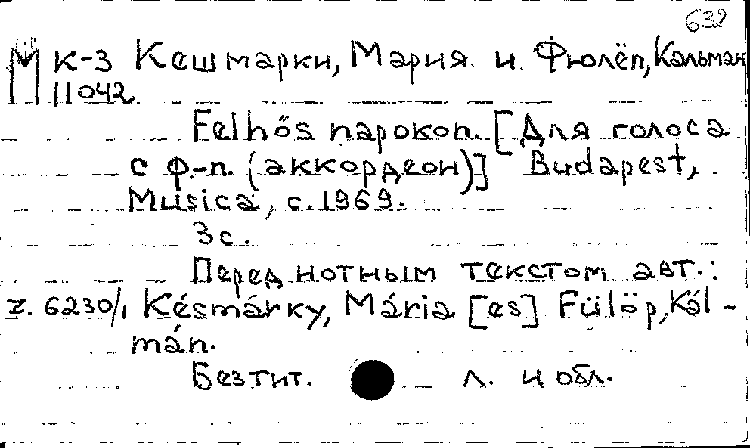 632
М к-3 Кешмарки, Мария и Фюлёп, Кальман
11042
Felhős napokon. [Для голоса
с ф.-п. (аккордеон)] Budapest,
Musica, c.1969.
3 с.
Перед нотным текстом авт.:
Z. 6230/1 Késmárky, Mária [es] Fülöp, Kál-
mán.
Без тит. л. и обл.